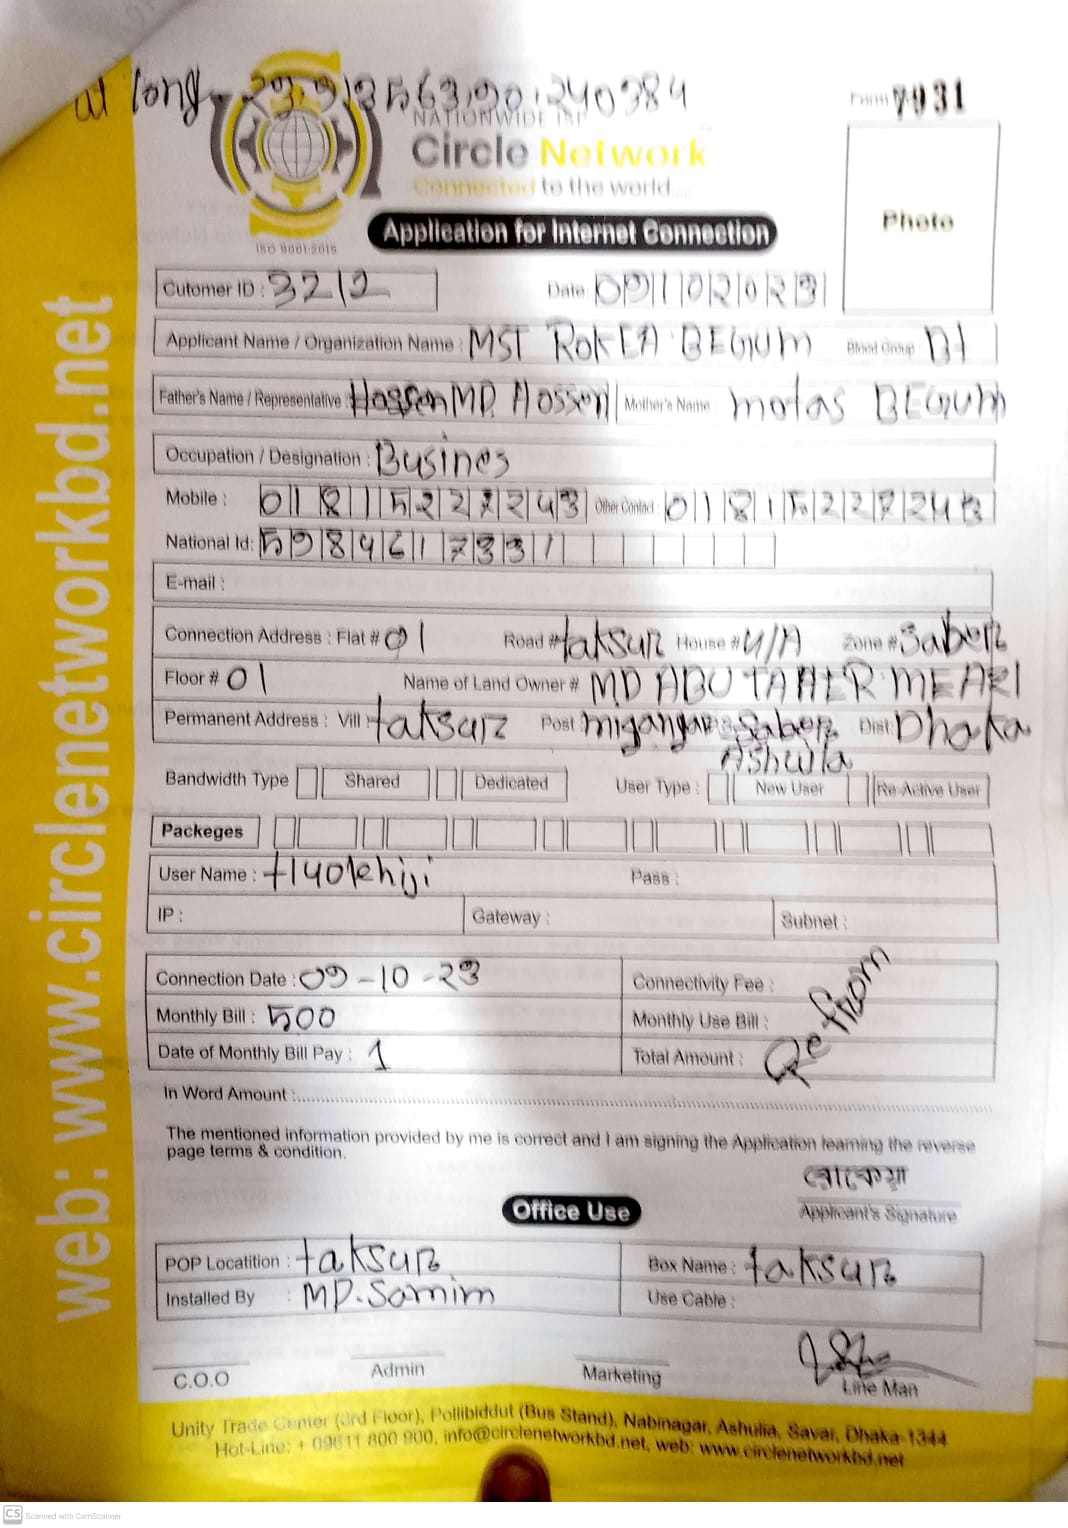 at long 23.913563,90.240384
Form 7931
NATIONWIDE ISP
Circle Network
Connected to the world....
ISO 9001:2015
Application for Internet Connection
Photo
Cutomer ID : 3212 Date: 09102023
Applicant Name / Organization Name : MST ROKEA BEGUM Blood Group : B+
Father's Name / Representative : MD. Hossen Mother's Name : motas BEGUM
Occupation / Designation : Busines
Mobile : 01815227243 Other Contact : 01815227243
National Id: 5984617331
E-mail :
Connection Address : Flat # 01 Road # taksur House # N/A Zone # Saber
Floor # 01 Name of Land Owner # MD ABU TAHER MEARI
Permanent Address : Vill taksur Post: Saber Dist: Dhaka
Bandwidth Type Shared Dedicated User Type : New User Re-Active User
Packeges
User Name : Pass :
IP : Gateway : Subnet :
Connection Date : 09-10-23 Connectivity Fee :
Monthly Bill : 500 Monthly Use Bill :
Date of Monthly Bill Pay : 1 Total Amount :
In Word Amount :
The mentioned information provided by me is correct and I am signing the Application learning the reverse
page terms & condition.
রোকেয়া
Applicant's Signature
Office Use
POP Locatition : taksur Box Name : taksur
Installed By : MD. Samim Use Cable :
C.O.O Admin Marketing Line Man
Unity Trade Center (3rd Floor), Pollibiddut (Bus Stand), Nabinagar, Ashulia, Savar, Dhaka-1344
Hot-Line: + 09611 800 900, info@circlenetworkbd.net, web: www.circlenetworkbd.net
web: www.circlenetworkbd.net
CS Scanned with CamScanner